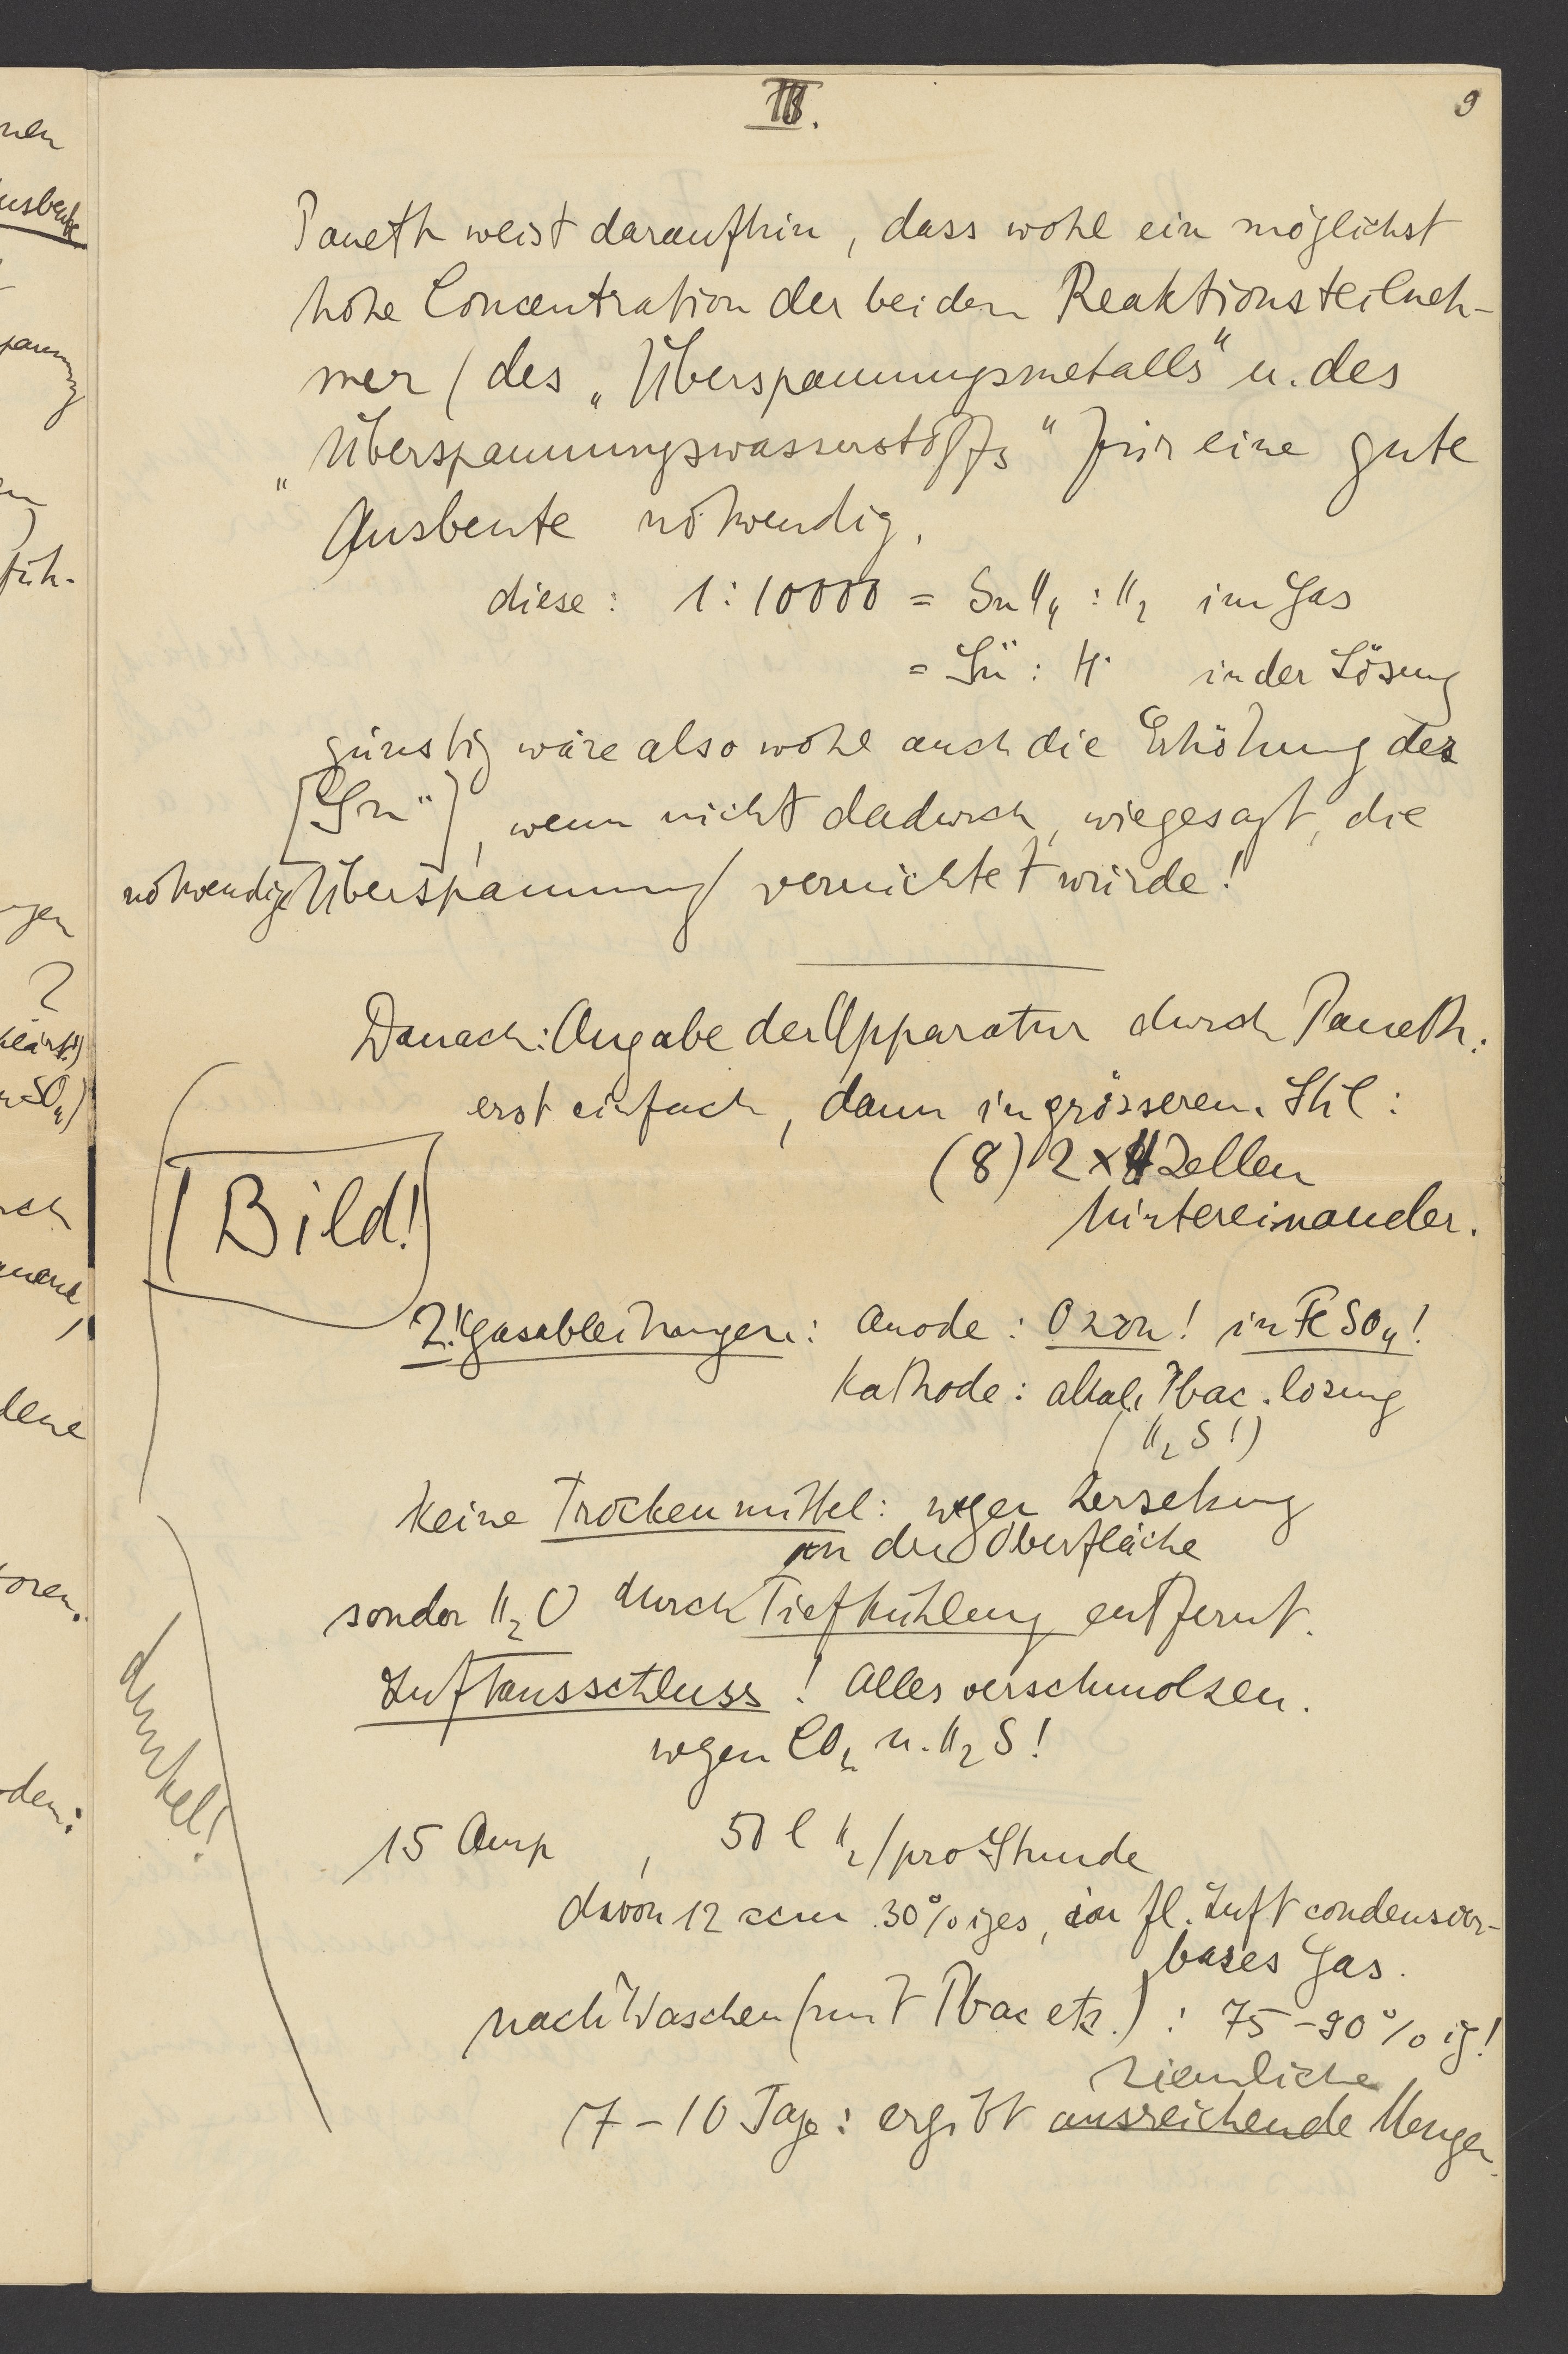 III.
9
Paneth weist daraufhin, dass wohl ein möglichst
hohe Concentration der beiden Reaktionsteilneh-
mer (des „Überspannungsmetalls“ u. des
„Überspannungswasserstoffs“ für eine gute
Ausbeute notwendig.
diese: 1:10000 = SnH4 : H2 im Gas
= Sn¨ : H˙ in der Lösung
günstig wäre also wohl auch die Erhöhung der
[Sn¨], wenn nicht dadurch, wiegesagt, die
notwendige Überspannung vernichtet würde!
Danach: Angabe der Apparatur durch Paneth:
erst einfach, dann in grösserem Stil:
(8) 2 x 4 Zellen
hintereinander.
Bild!
2! Gasableitungen: Anode: Ozon! in FeSO4!
Kathode: alkal. Pbac. lösung
(H2S!)
Keine Trockenmittel: wegen Zersetzung
an der Oberfläche
sonder H2O durch Tiefkühlung entfernt.
Luftausschluss! Alles verschmolzen.
wegen CO2 u. H2S!
dunkel!
15 Amp, 50 l H2/pro Stunde
davon 12 ccm 30%iges, in fl. Luft condensier-
bares Gas.
nach Waschen (mit Pbac etc.): 75-90%ig!
ziemliche
7-10 Tage: ergibt ausreichende Mengen
nen
Ausbeute
füh-
?